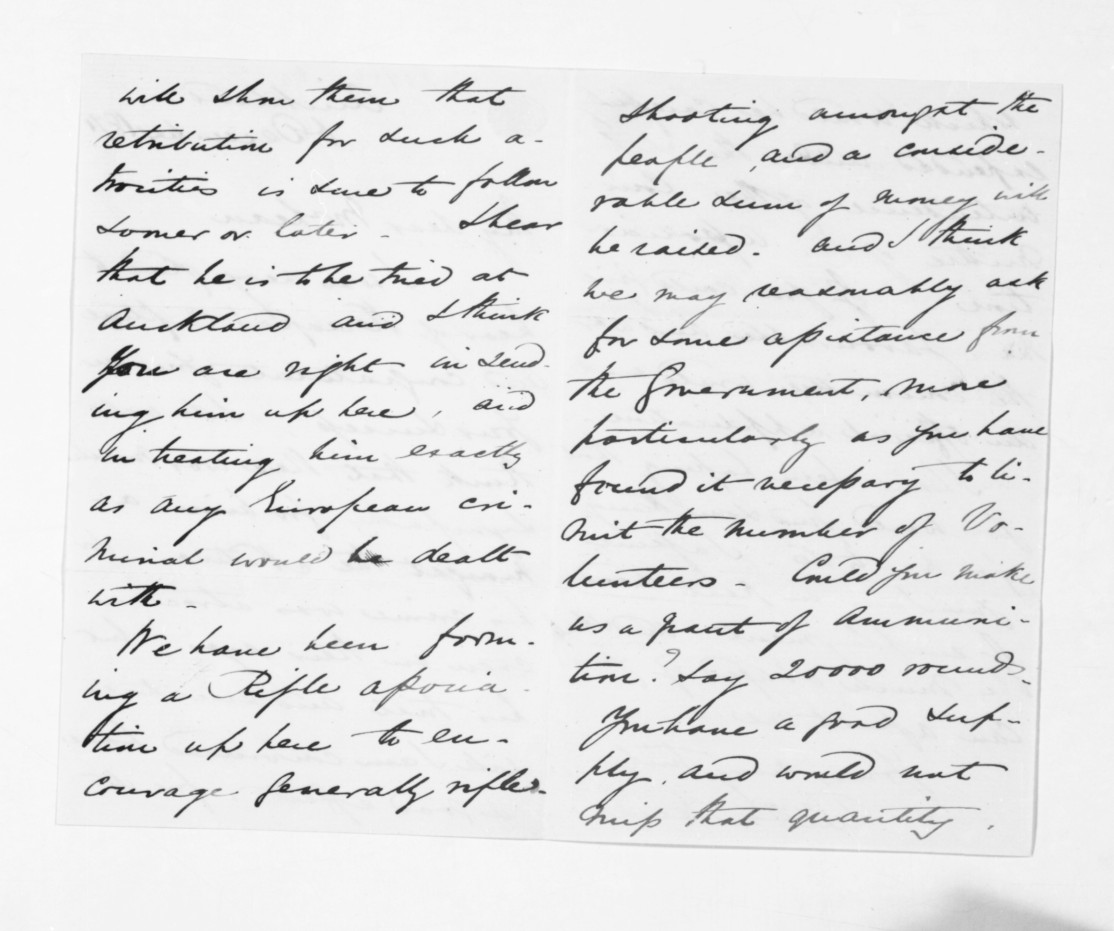 will show them that
retribution for such a-
trocities is sure to follow
sooner or later - I hear
that he is to be tried at
Auckland and I think
You are right in send-
ing him up here, and
in treating him exactly
as any European cri-
minal would be dealt
with -
We have been form-
ing a Rifle associa-
tion up here to en-
courage generally rifle-
shooting amongst the
people, and a conside-
rable sum of money will
be raised. and I think
we may reasonably ask
for some assistance from
the Government, more
particularly as you have
found it necessary to li-
mit the number of Vo-
lunteers - Could you make
us a grant of Ammuni-
tion? Say 20000 rounds.
You have a good sup-
ply, and would not
miss that quantity.